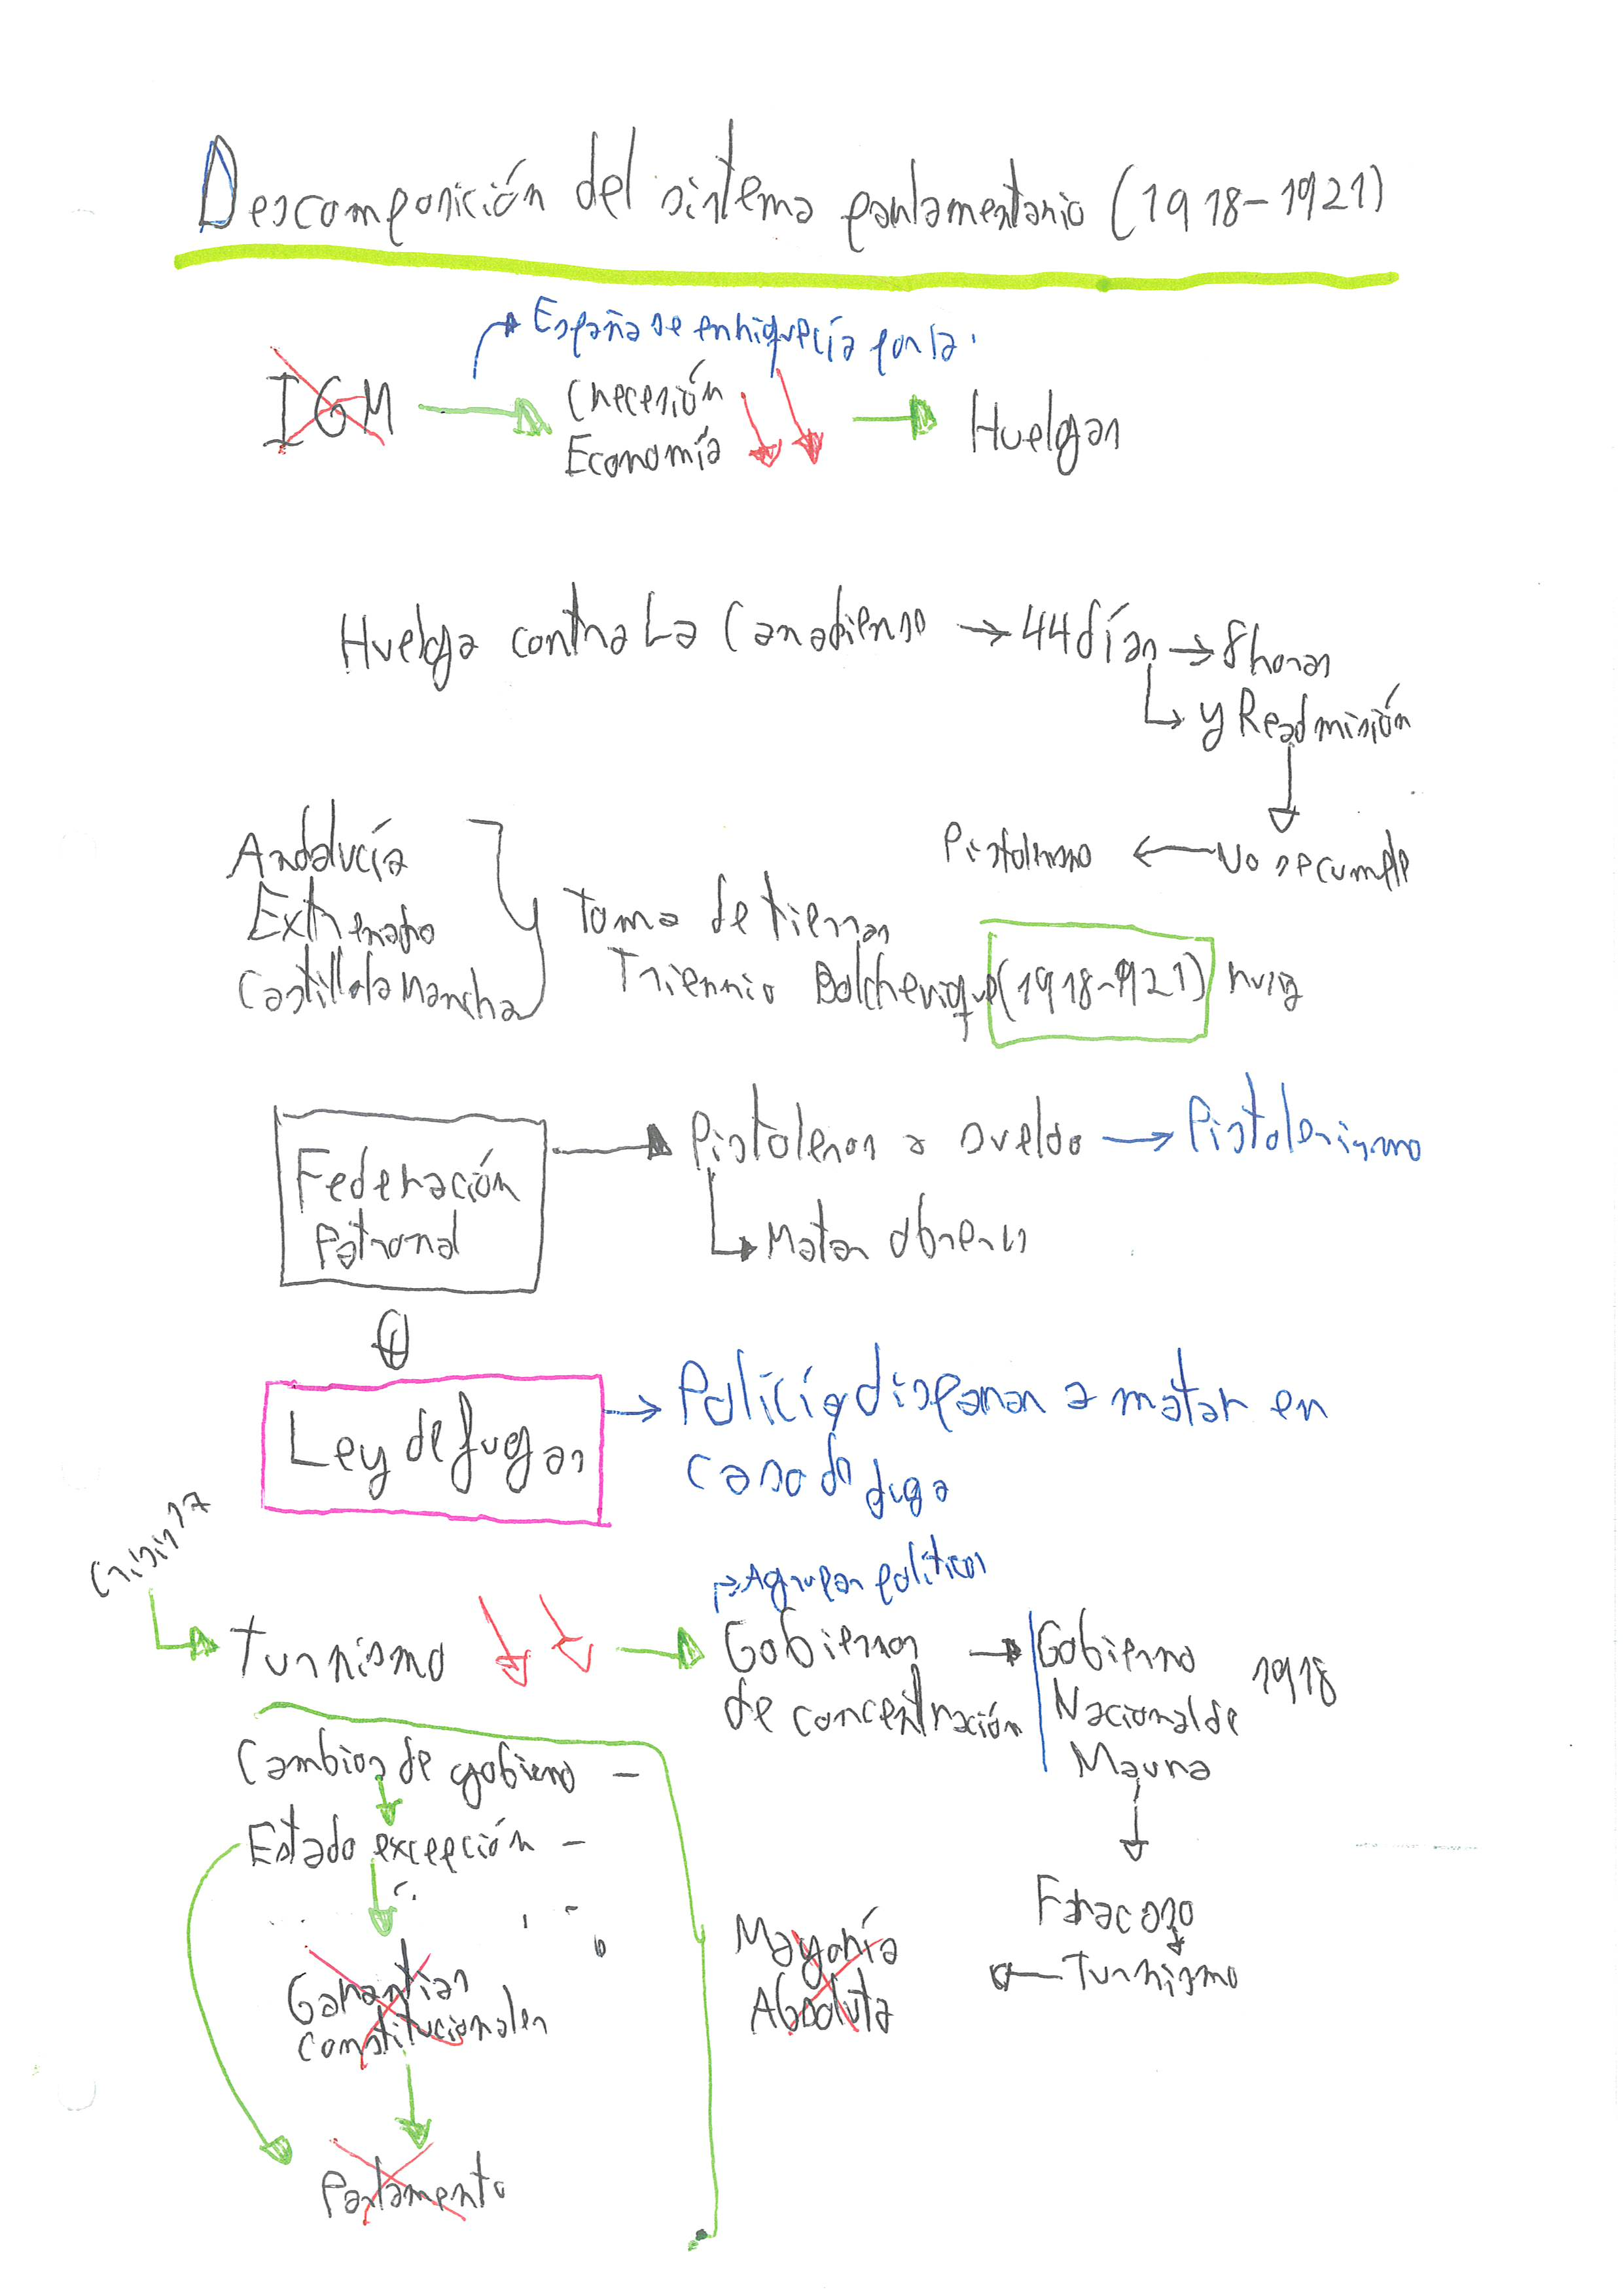 Descomposición del sistema parlamentario (1918-1921)
España se enriquecía por la
IGM
Crecesión
Economía
Huelgas
Huelga contra La Canadiense → 44 días → 8 horas
y Readmisión
No se cumple
Pistolerismo
Andalucía
Extremadura
Castilla la Mancha
Toma de tierras
Trienio Bolchevique (1918-1921)
Federación
Patronal
Pistoleros a sueldo → Pistolerismo
Matar obreros
Ley de fugas
→ Policía disparan a matar en
caso de fuga
Crisis 17
Turnismo
Agrupan políticos
Gobiernos
de concentración
Gobierno
Nacional de
Maura
1918
Fracaso
Turnismo
Mayoría
Absoluta
Cambios de gobierno -
Estado excepción -
Garantías
constitucionales
Parlamento